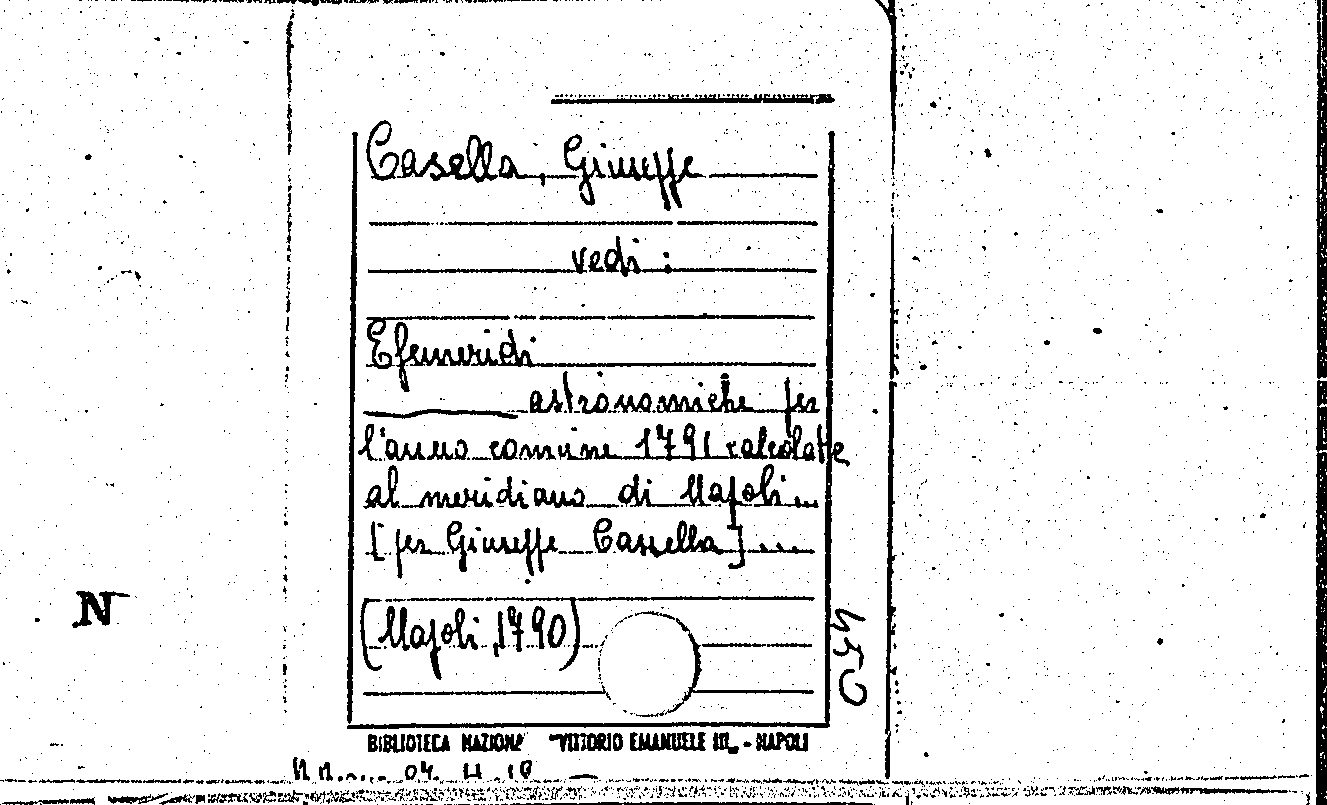 Casella, Giuseppe
vedi :
Efemeridi
astronomiche per
l'anno comune 1791 calcolate
al meridiano di Napoli...
[per Giuseppe Cassella]....
(Napoli, 1790)
450
N
BIBLIOTECA NAZIONA "VITTORIO EMANUELE III" - NAPOLI